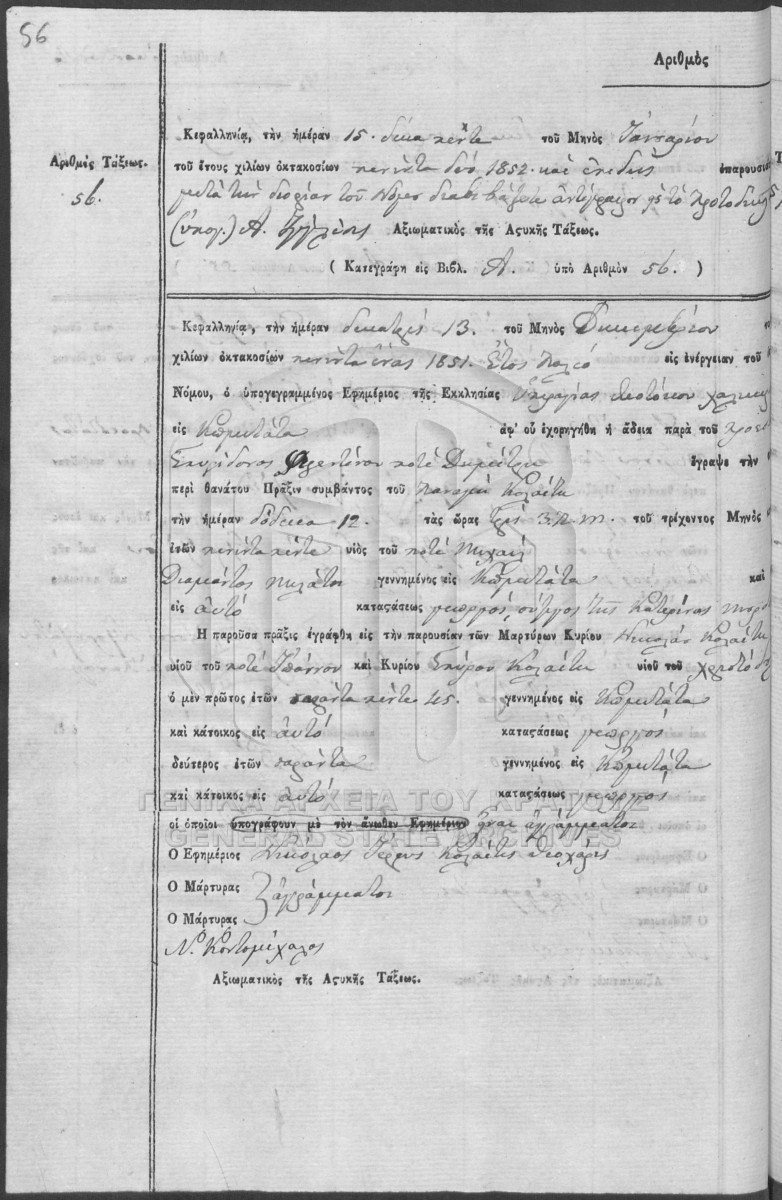 56
Ἀριθμὸς
Ἀριθμὸς Τάξεως.
56.
Κεφαλληνίᾳ, τὴν ἡμέραν 15. δέκα πέντε τοῦ Μηνὸς Ἰανναρίου
τοῦ ἔτους χιλίων ὀκτακοσίων πενῆντα δύο, 1852. καὶ ἐπειδὴ ἐπαρουσι
μετὰ τὴν διορίαν τοῦ Νόμου ἀντίγραφον
(ὑπογ.) Α. Ἀξιωματικὸς τῆς Ἀςυκῆς Τάξεως.
( Κατεγράφη εἰς Βιβλ. Α. ὑπὸ Ἀριθμὸν 56. )
Κεφαλληνίᾳ, τὴν ἡμέραν δεκατρὶς 13. τοῦ Μηνὸς Δικεμβρίου
χιλίων ὀκτακοσίων πενῆντα ἕνας 1851. Ἔτος παλεό εἰς ἐνέργειαν τοῦ
Νόμου, ὁ ὑπογεγραμμένος Ἐφημέριος τῆς Ἐκκλησίας Ὑπεραγίας Θεοτόκου
εἰς Κομιτάτα ἀφ' οὗ ἐχορηγήθη ἡ ἄδεια παρὰ τοῦ
Σπυρίδονος ποτὲ Δημήτρη ἔγραψε τὴν
περὶ θανάτου Πρᾶξιν συμβάντος τοῦ Παναγὴ Κολαΐτη
τὴν ἡμέραν δόδεκα 12. τὰς ὥρας τρὶς 3. π. μ. τοῦ τρέχοντος Μηνὸς
ἐτῶν πενῆντα πέντε υἱὸς τοῦ ποτὲ Μιχαὴλ
Διαμάντος γεννημένος εἰς Κομιτάτα καὶ
εἰς αὐτό καταςάσεως γεοργός, σύζυγος τῆς Κατερίνας
Ἡ παροῦσα πρᾶξις ἐγράφθη εἰς τὴν παρουσίαν τῶν Μαρτύρων Κυρίου Νικολάου Κολαΐτη
υἱοῦ τοῦ ποτὲ Ἰοάννου καὶ Κυρίου Σπύρου Κολαΐτη υἱοῦ τοῦ
ὁ μὲν πρῶτος ἐτῶν σαράντα πέντε 45. γεννημένος εἰς Κομιτάτα
καὶ κάτοικος εἰς αὐτό καταςάσεως γεοργός
δεύτερος ἐτῶν σαράντα γεννημένος εἰς Κομιτάτα
καὶ κάτοικος εἰς αὐτό καταςάσεως γεοργός
οἱ ὁποῖοι ὑπογράφουν μὲ τὸν ἄνωθεν Ἐφημέριον ἦναι ἀγράμματοι
Ὁ Ἐφημέριος Νικόλαος Ἱερεὺς Κολαΐτης Θεοχάρης
Ὁ Μάρτυρας ἀγράμματοι
Ὁ Μάρτυρας
Ν. Κοντομίχαλος
Ἀξιωματικὸς τῆς Ἀςυκῆς Τάξεως.
ΓΕΝΙΚΑ ΑΡΧΕΙΑ ΤΟΥ ΚΡΑΤΟΥΣ
GENERAL STATE ARCHIVES